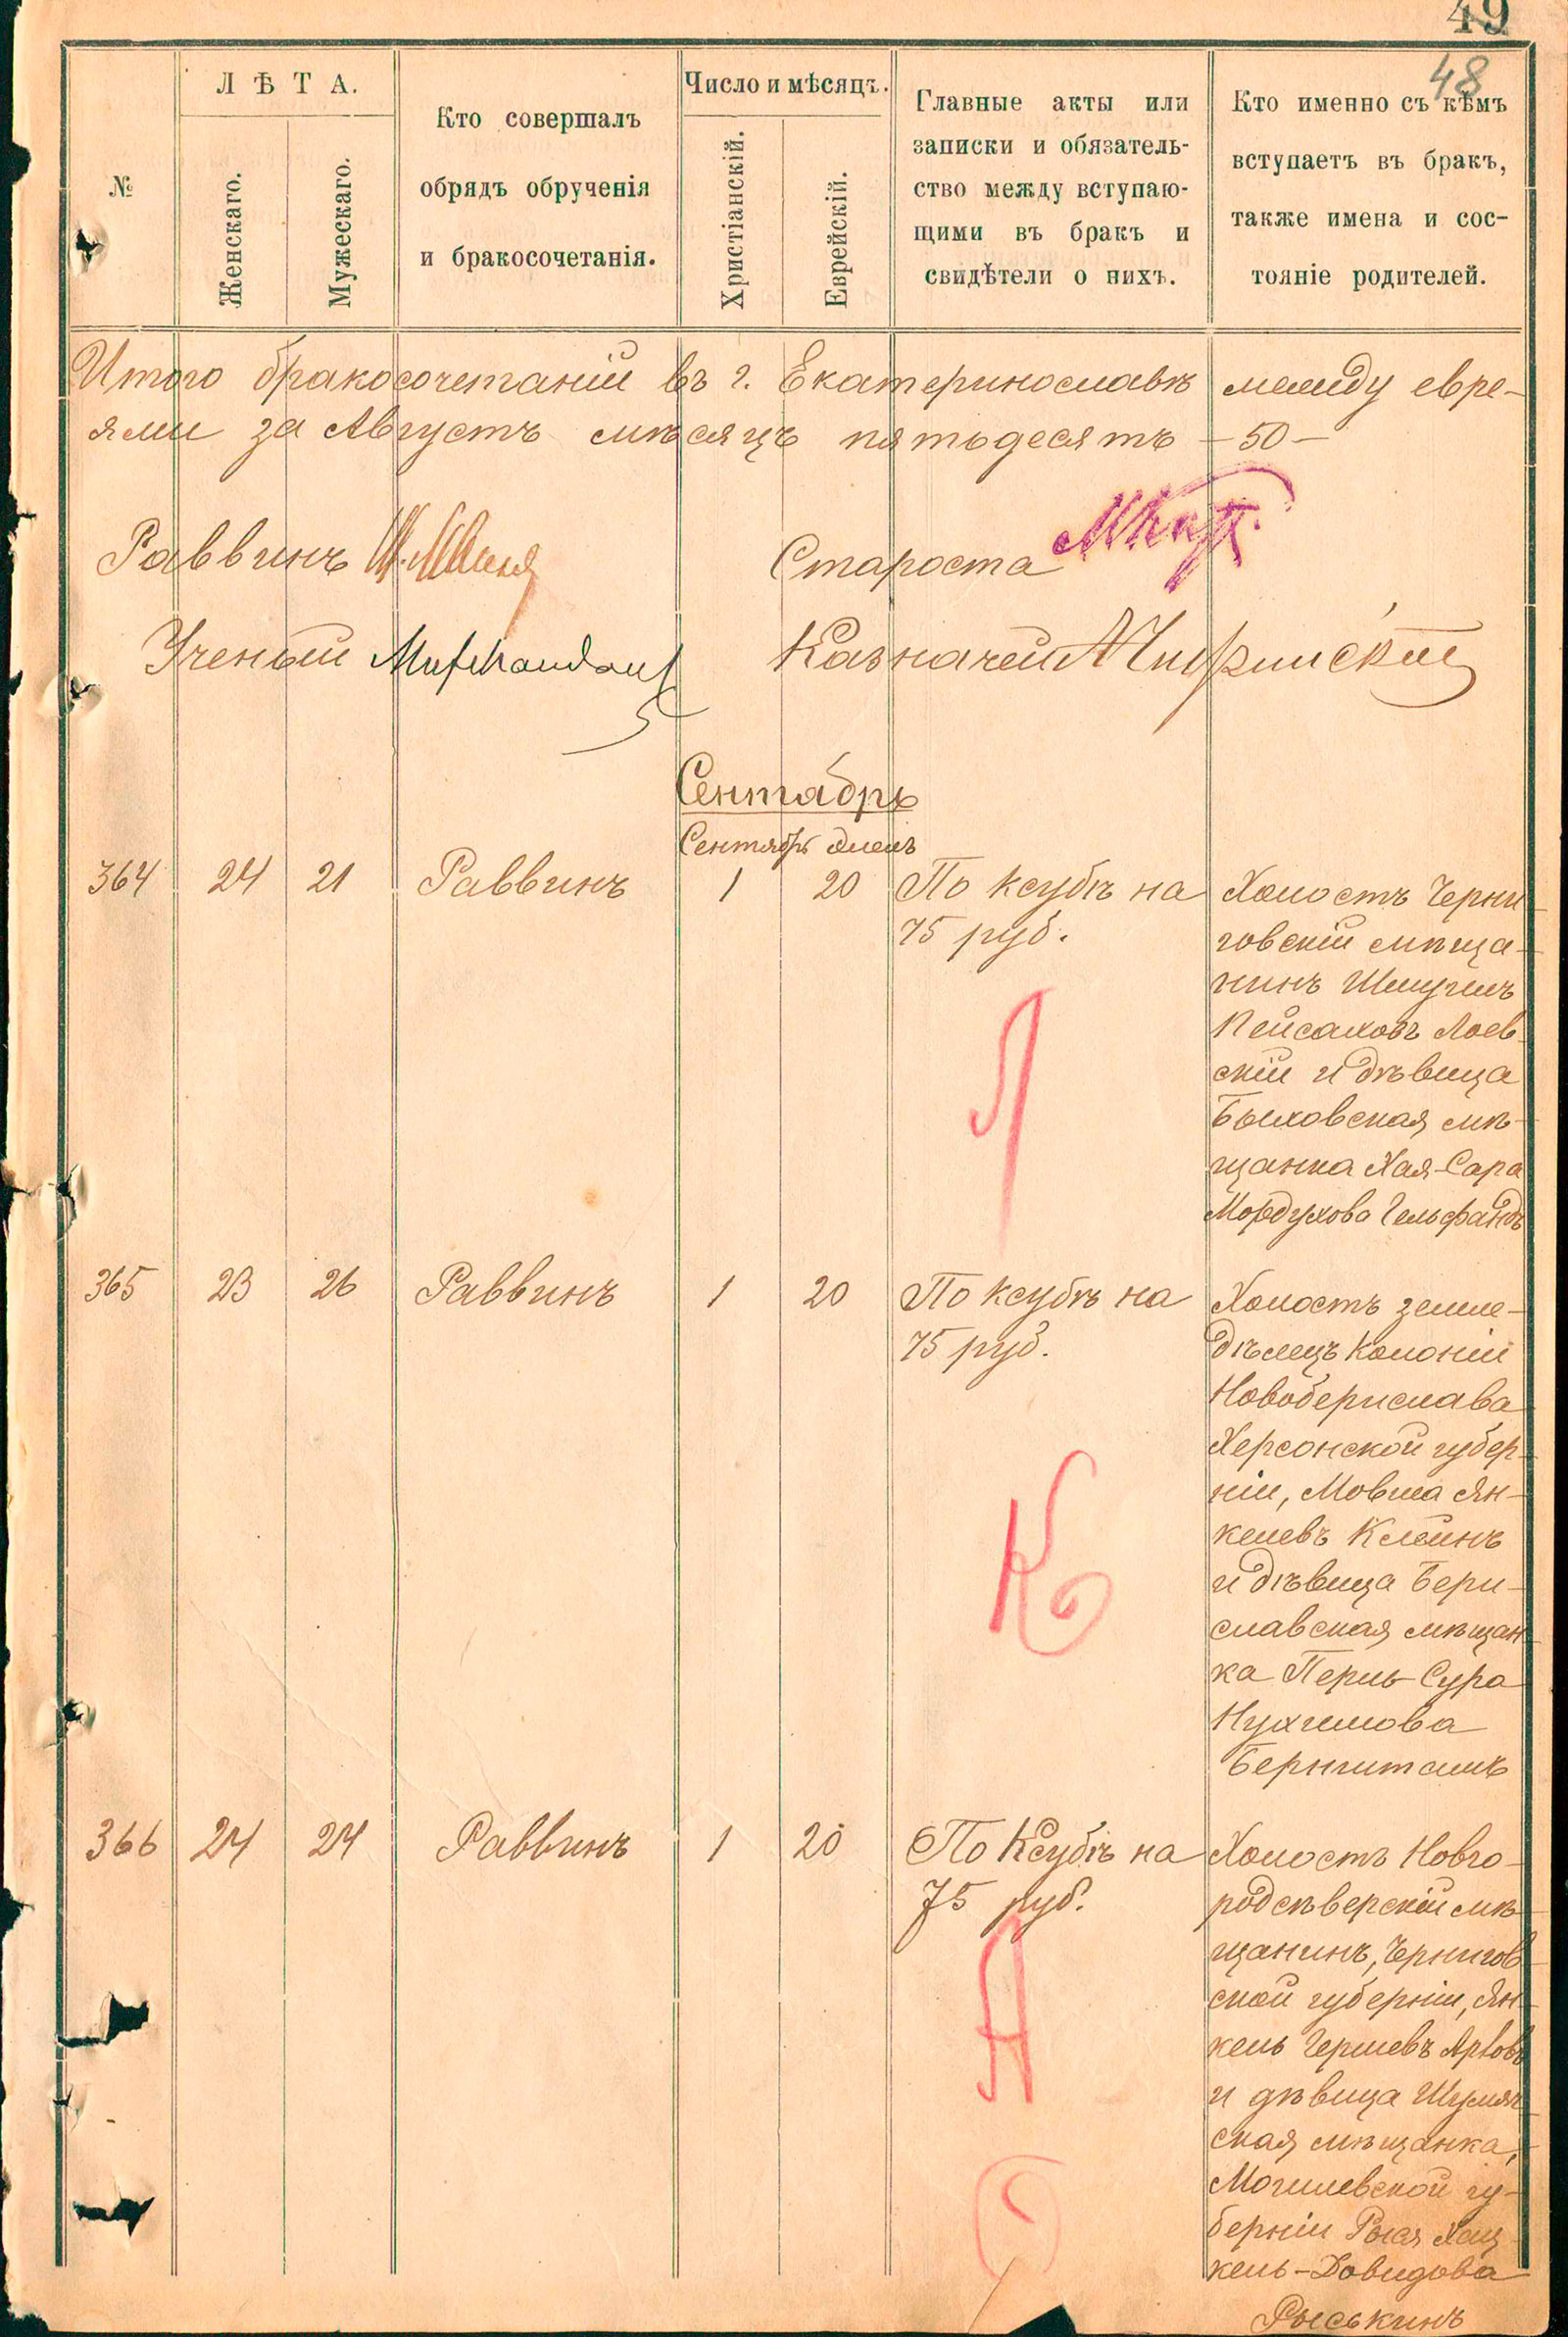 49
48
№
ЛѢТА.
Женскаго.
Мужескаго.
Кто совершалъ
обрядъ обрученія
и бракосочетанія.
Число и мѣсяцъ.
Христіанскій.
Еврейскій.
Главные акты или
записки и обязатель-
ство между вступаю-
щими въ бракъ и
свидѣтели о нихъ.
Кто именно съ кѣмъ
вступаетъ въ бракъ,
также имена и сос-
тояніе родителей.
Итого бракосочетаній въ г. Екатеринославѣ между евре-
ями за Августъ мѣсяцъ пятьдесятъ – 50 –
Раввинъ
Староста
Ученый
Казначей
Сентябрь
Сентябрь
364 24 21 Раввинъ 1 20 По ксубѣ на
75 руб.
Холостъ Черни-
говскій мѣща-
нинъ Шмуилъ
Пейсаховъ Лоев-
скій и дѣвица
Быховская мѣ-
щанка Хая-Сара
Мордухова Гельфандъ
Л
365 23 26 Раввинъ 1 20 По ксубѣ на
75 руб.
Холостъ земле-
дѣлецъ колоніи
Новоберислава
Херсонской губер-
ніи, Мовша Ян-
келевъ Клейнъ
и дѣвица Бери-
славская мѣщан-
ка Перль-Сура
Нухимова
К
366 24 24 Раввинъ 1 20 По Ксубѣ на
75 руб.
Холостъ Новго-
родсѣверскій мѣ-
щанинъ, Чернигов-
ской губерніи, Ян-
кель Гершевъ
и дѣвица Шумяч-
ская мѣщанка,
Могилевской гу-
берніи Хац-
кель-Довидова
Рыськинъ
А